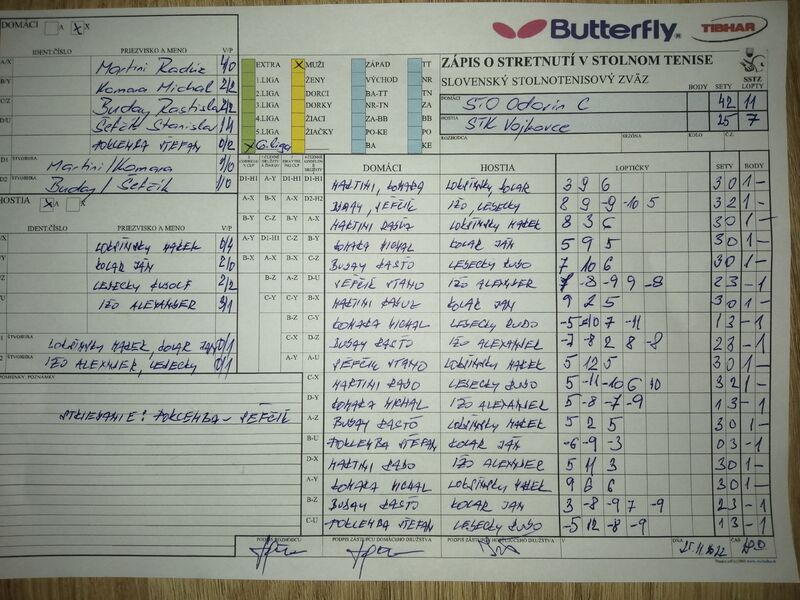 DOMÁCI A X X
Butterfly
TIBHAR
IDENT.ČÍSLO PRIEZVISKO A MENO V/P
A/X Martini Radúz 4/0
B/Y Komara Michal 2/2
C/Z Buday Rastislav 2/2
D/U Šefčík Stanislav 1/1
POKLEMBA ŠTEFAN 0/2
D1 ŠTVORHRA Martini/Komara 1/0
D2 Buday/Šefčík 1/0
HOSTIA
EXTRA X MUŽI ZÁPAD TT
1.LIGA ŽENY VÝCHOD NR
2.LIGA DORCI BA-TT TN
3.LIGA DORKY NR-TN ZA
4.LIGA ŽIACI ZA-BB BB
5.LIGA ŽIAČKY PO-KE PO
X 6.liga BA KE
ZÁPIS O STRETNUTÍ V STOLNOM TENISE
SLOVENSKÝ STOLNOTENISOVÝ ZVÄZ
SSTZ
BODY SETY LOPTY
DOMÁCI STO Odorín C 42 11
HOSTIA STK Vojkovce 25 7
ROZHODCA SEZÓNA KOLO Č.Z.
IDENT.ČÍSLO PRIEZVISKO A MENO V/P
LOKŠINSKY MAREK 0/4
KOLAR JÁN 2/0
LESECKY RUDOLF 2/2
IŽO ALEXANDER 3/1
ŠTVORHRA LOKŠINSKY MAREK, KOLAR JAN 0/1
ŠTVORHRA IŽO ALEXANDER, LESECKY 0/1
POZNÁMKY
STRIEDANIE: POKLEMBA - ŠEFČÍK
DOMÁCI HOSTIA LOPTIČKY SETY BODY
D1-H1 MARTINI, KOMARA LOKŠINSKY KOLAR 3 9 6 3 0 1 -
D2-H2 BUDAY, ŠEFČÍK IŽO LESECKY 8 9 -9 -10 5 3 2 1 -
A-X MARTINI RADUZ LOKŠINSKY MAREK 8 3 6 3 0 1 -
B-Y KOMARA MICHAL KOLAR JÁN 5 9 5 3 0 1 -
C-Z BUDAY RASŤO LESECKY RUDO 7 10 6 3 0 1 -
D-U ŠEFČÍK STANO IŽO ALEXANDER 7 -8 -9 9 -8 2 3 - 1
B-X MARTINI RADUZ KOLAR JAN 9 2 5 3 0 1 -
C-Y KOMARA MICHAL LESECKY RUDO -5 -10 7 -11 1 3 - 1
D-Z BUDAY RASŤO IŽO ALEXANDER -7 -8 2 8 -8 2 3 - 1
A-U ŠEFČÍK STANO LOKŠINSKY MAREK 5 12 5 3 0 1 -
C-X MARTINI RADO LESECKY RUDO 5 -11 -10 6 10 3 2 1 -
D-Y KOMARA MICHAL IŽO ALEXANDER 5 -8 -7 -9 1 3 - 1
A-Z BUDAY RASŤO LOKŠINSKY MAREK 5 2 5 3 0 1 -
B-U POKLEMBA ŠTEFAN KOLAR JÁN -6 -9 -3 0 3 - 1
D-X MARTINI RADO IŽO ALEXANDER 5 11 3 3 0 1 -
A-Y KOMARA MICHAL LOKŠINSKY MAREK 9 6 6 3 0 1 -
B-Z BUDAY RASŤO KOLAR JAN 3 -8 -9 7 -9 2 3 - 1
C-U POKLEMBA ŠTEFAN LESECKY RUDO -5 12 -8 -9 1 3 - 1
PODPIS ROZHODCU PODPIS ZÁSTUPCU DOMÁCEHO DRUŽSTVA PODPIS ZÁSTUPCU HOSŤUJÚCEHO DRUŽSTVA V DŇA 25.11.2022 ČAS